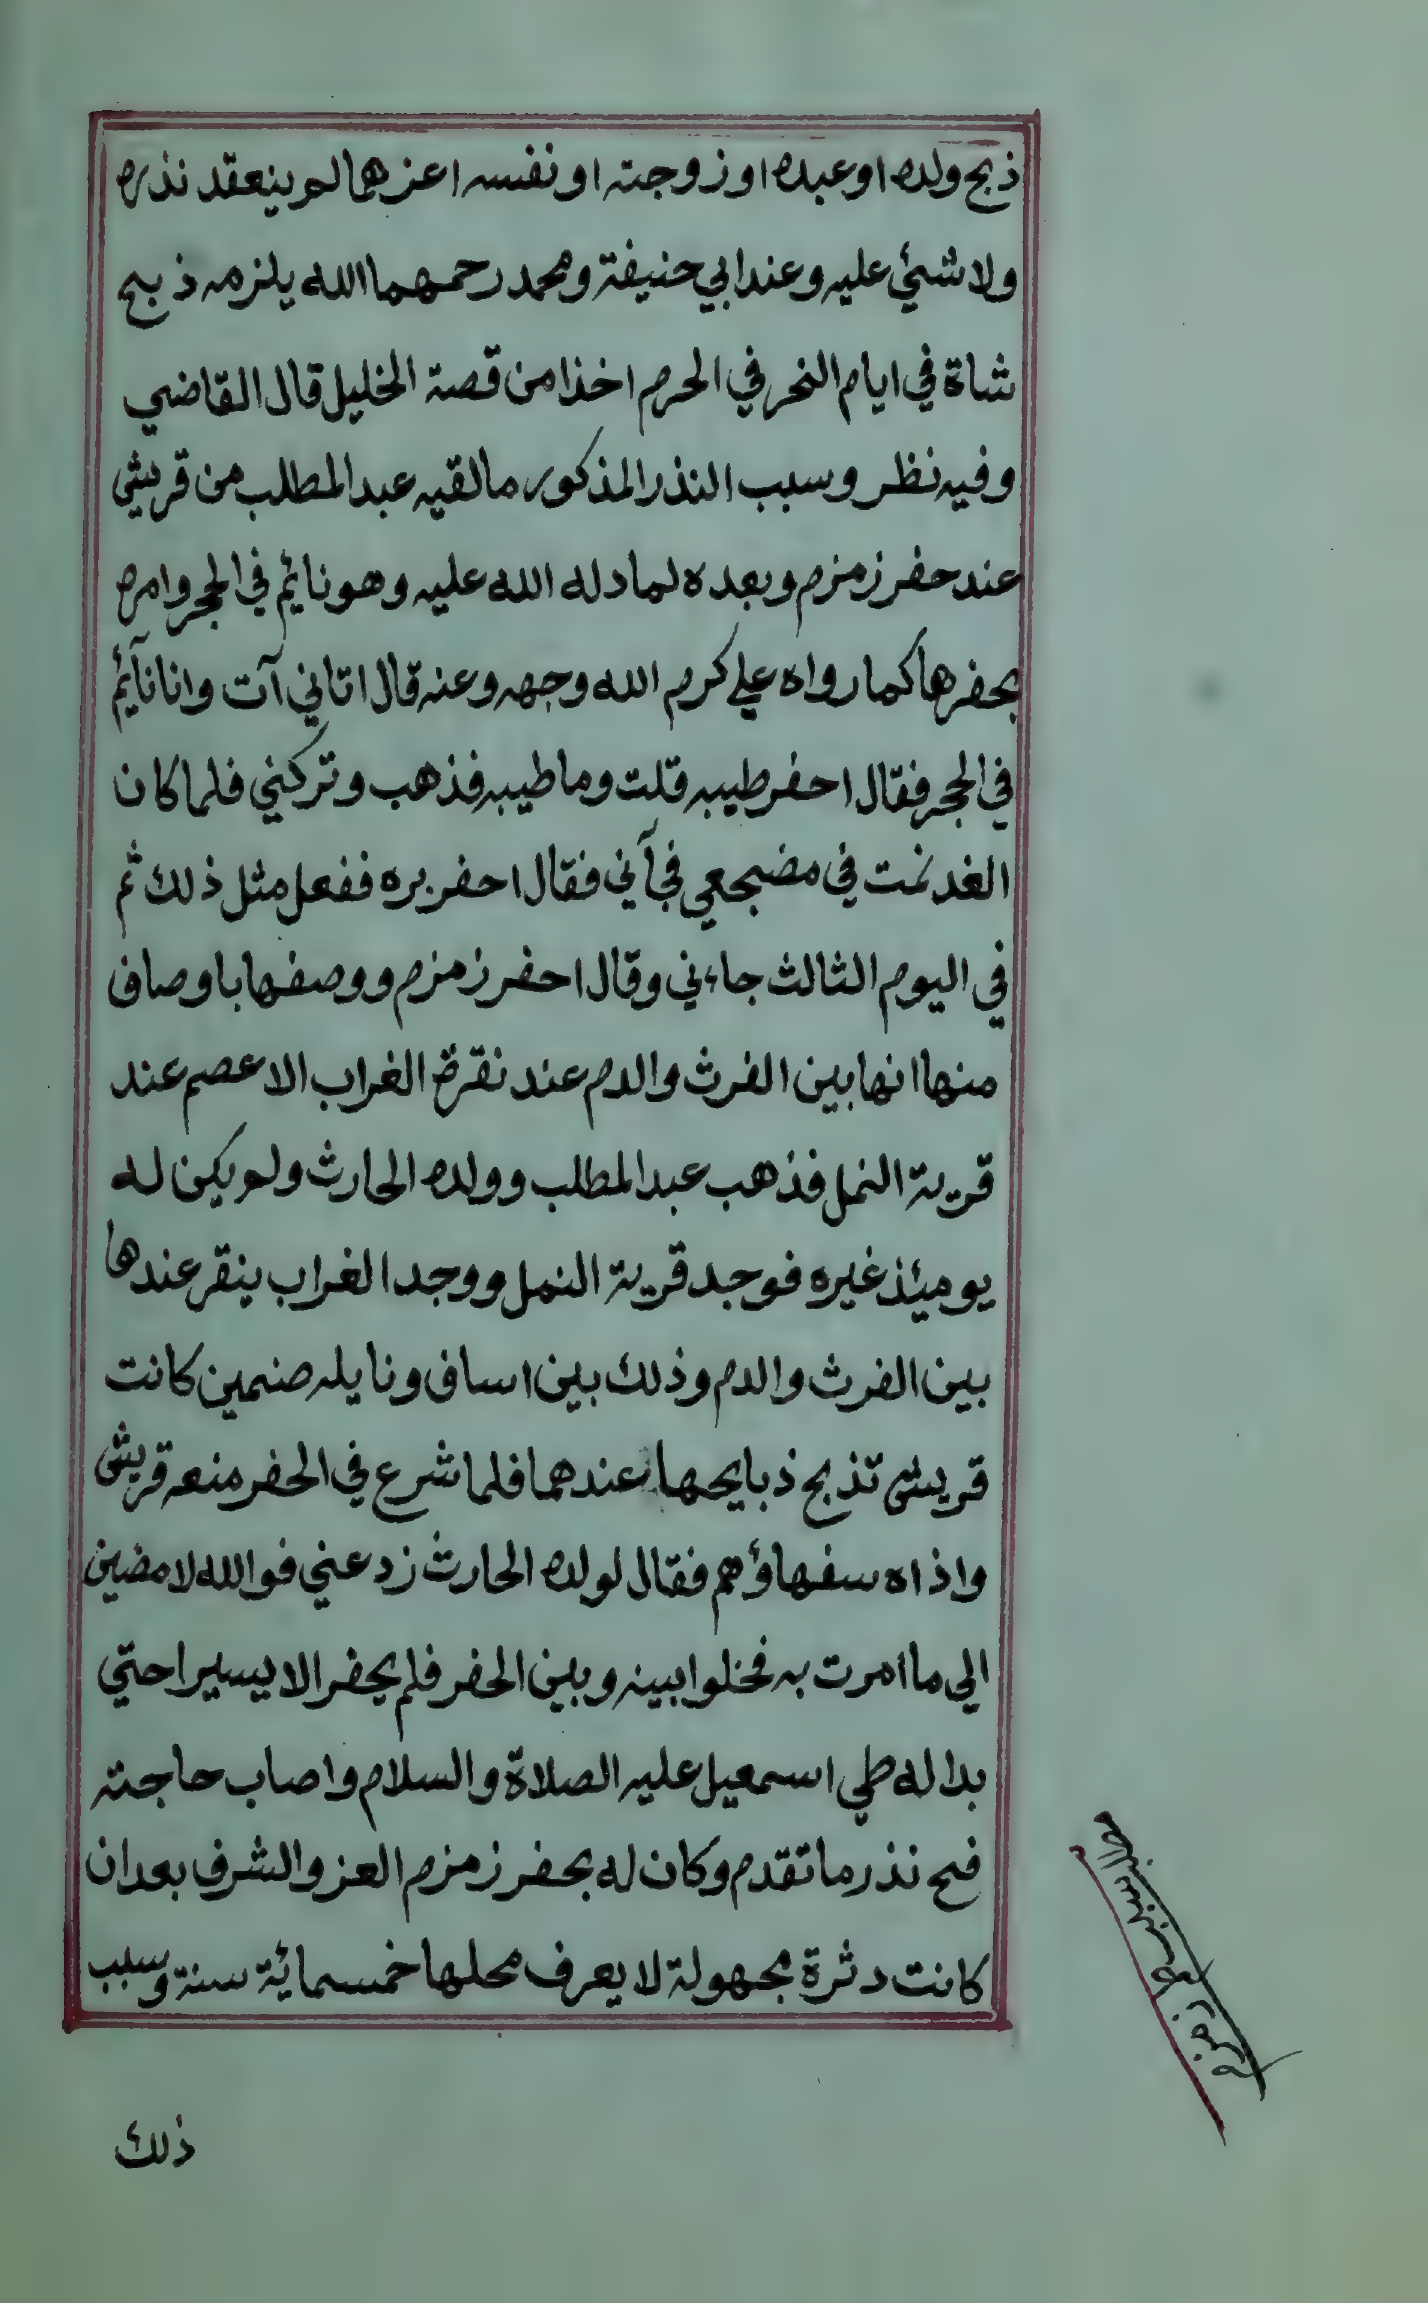 ذبح ولده او عبده او زوجته او نفسه اعزهما لم ينعقد نذره
ولا شئ عليه وعند ابي حنيفة ومحمد رحمهما الله يلزمه ذبح
شاة في ايام النحر في الحرم اخذا من قصة الخليل قال القاضي
وفيه نظر وسبب النذر المذكور ما لقيه عبد المطلب من قريش
عند حفر زمزم وبعده لما دله الله عليه وهو نائم في الحجر وامره
بحفرها كما رواه علي كرم الله وجهه وعنه قال اتاني آت وانا نآئم
في الحجر فقال احفر طيبه قلت وما طيبه فذهب وتركني فلما كان
الغد نمت في مضجعي فجآني فقال احفر بره ففعل مثل ذلك ثم
في اليوم الثالث جاءني وقال احفر زمزم ووصفها باوصاف
منها انها بين الفرث والدم عند نقرة الغراب الاعصم عند
قرية النمل فذهب عبد المطلب وولده الحارث ولم يكن له
يومئذ غيره فوجد قرية النمل ووجد الغراب ينقر عندها
بين الفرث والدم وذلك بين اساف ونايله صنمين كانت
قريش تذبح ذبايحها عندهما فلما شرع في الحفر منعه قريش
واذاه سفهاؤهم فقال لولده الحارث زد عني فوالله لامضين
الي ما امرت به فخلوا بينه وبين الحفر فلم يحفر الا يسيرا حتي
بدا له طي اسمعيل عليه الصلاة والسلام واصاب حاجته
فح نذر ما تقدم وكان له بحفر زمزم العز والشرف بعد ان
كانت دثرة مجهولة لا يعرف محلها خمسمائة سنة وسبب
ذلك
زمزم